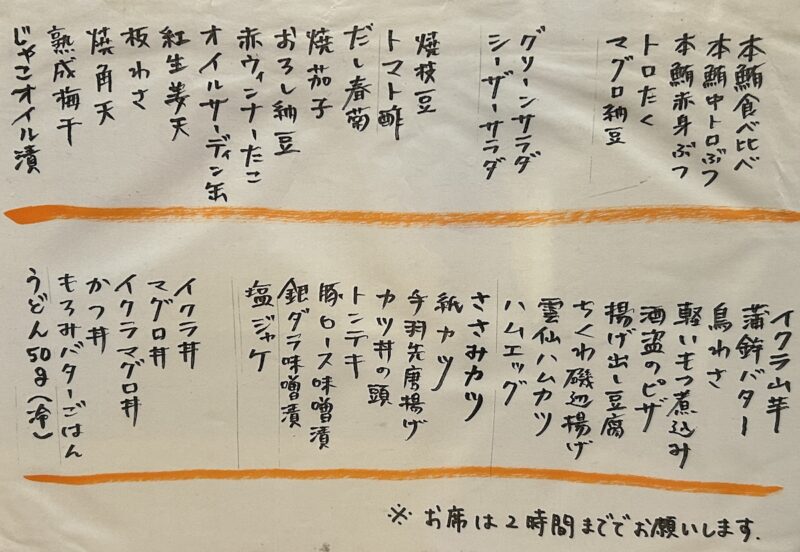 本鮪食べ比べ
本鮪中トロぶつ
本鮪赤身ぶつ
トロたく
マグロ納豆
グリーンサラダ
シーザーサラダ
焼枝豆
トマト酢
だし春菊
焼茄子
おろし納豆
赤ウィンナーたこ
オイルサーディン缶
紅生姜天
板わさ
焼角天
熟成梅干
じゃこオイル漬
イクラ山芋
蒲鉾バター
鳥わさ
軽いもつ煮込み
酒盗のピザ
揚げ出し豆腐
ちくわ磯辺揚げ
雲仙ハムカツ
ハムエッグ
ささみカツ
紙カツ
手羽先唐揚げ
カツ丼の頭
トンテキ
豚ロース味噌漬
銀ダラ味噌漬
塩ジャケ
イクラ丼
マグロ丼
イクラマグロ丼
かつ丼
もろみバターごはん
うどん50g(冷)
※ お席は2時間まででお願いします.